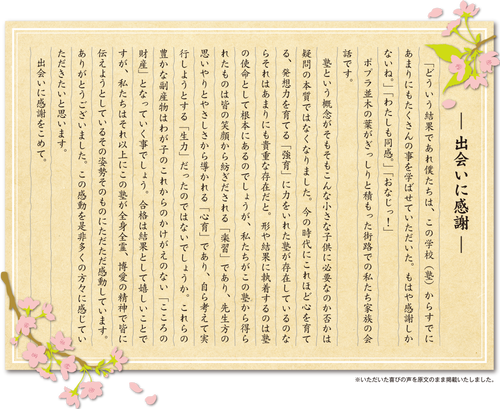 ― 出会いに感謝 ―
「どういう結果であれ僕たちは、この学校（塾）からすでに
あまりにもたくさんの事を学ばせていただいた。もはや感謝しか
ないね。」「わたしも同感。」「おなじっ！」
ポプラ並木の葉がぎっしりと積もった街路での私たち家族の会
話です。
塾という概念がそもそもこんな小さな子供に必要なのか否かは
疑問の本質ではなくなりました。今の時代にこれほど心を育て
る、発想力を育てる「強育」に力をいれた塾が存在しているのな
らそれはあまりにも貴重な存在だと。形や結果に執着するのは塾
の使命として根本にあるのでしょうが、私たちがこの塾から得ら
れたものは皆の笑顔から紡ぎだされる「楽習」であり、先生方の
思いやりとやさしさから導かれる「心育」であり、自ら考えて実
行しようとする「生力」だったのではないでしょうか。これらの
豊かな副産物はわが子のこれからのかけがえのない「こころの
財産」となっていく事でしょう。合格は結果として嬉しいことで
すが、私たちはそれ以上にこの塾が全身全霊、博愛の精神で皆に
伝えようとしているその姿勢そのものにただただ感動しています。
ありがとうございました。この感動を是非多くの方々に感じてい
ただきたいと思います。
出会いに感謝をこめて。
※いただいた喜びの声を原文のまま掲載いたしました。